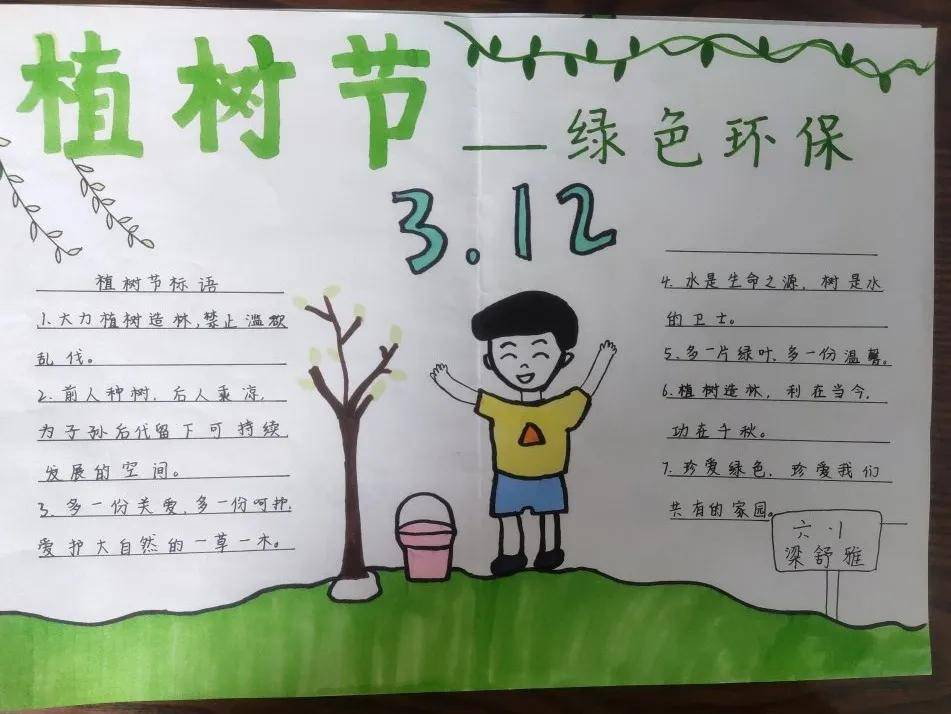 植树节
——绿色环保
3.12
植树节标语
1.大力植树造林,禁止滥砍
乱伐。
2.前人种树,后人乘凉,
为子孙后代留下可持续
发展的空间。
3.多一份关爱,多一份呵护,
爱护大自然的一草一木。
4.水是生命之源,树是水
的卫士。
5.多一片绿叶,多一份温馨。
6.植树造林,利在当今,
功在千秋。
7.珍爱绿色,珍爱我们
共有的家园。
梁舒雅